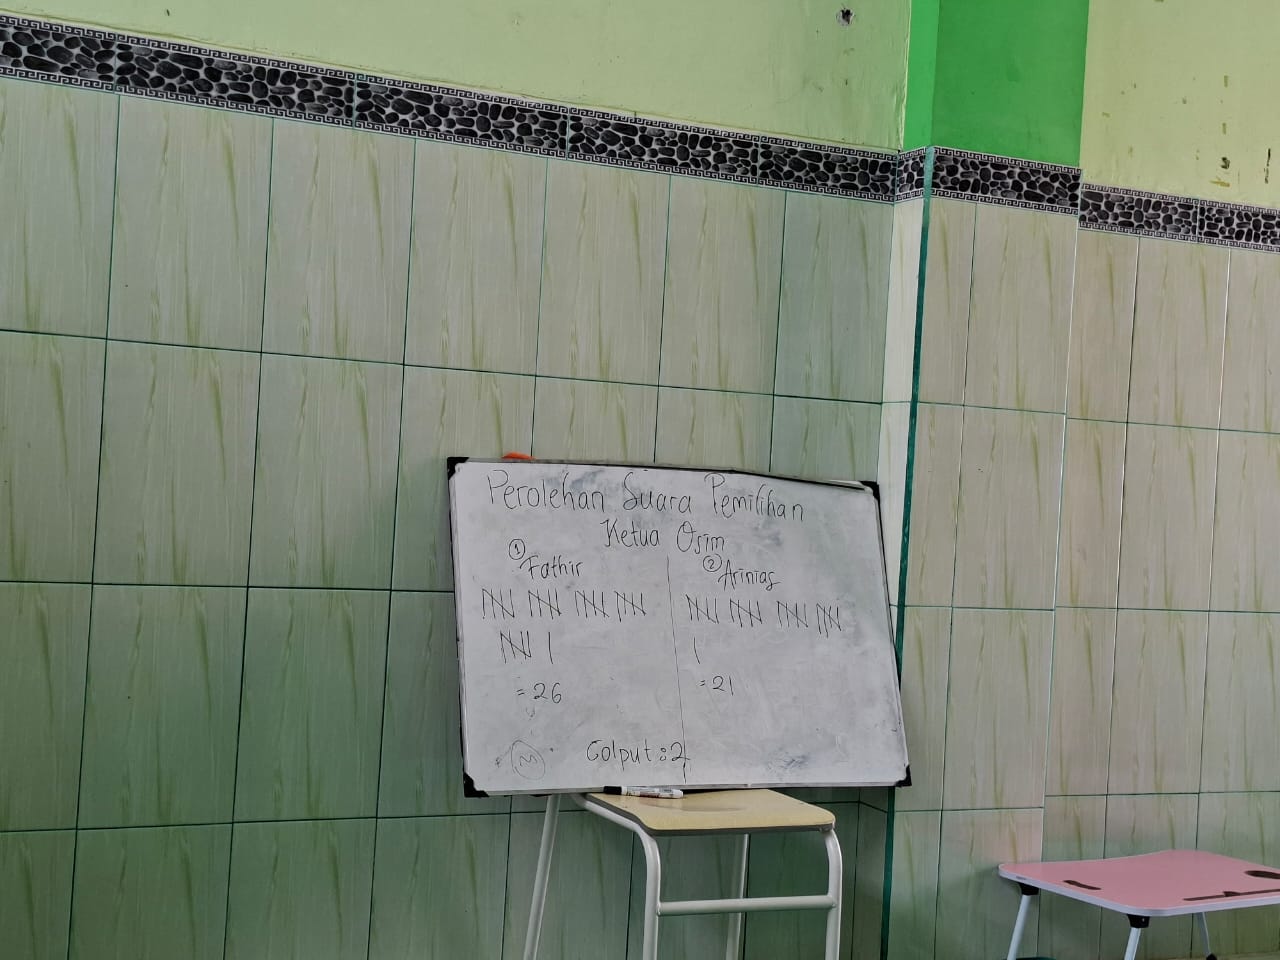 Perolehan Suara Pemilihan
Ketua Osim
① Fathir
② Arinias
= 26
= 21
Golput : 2